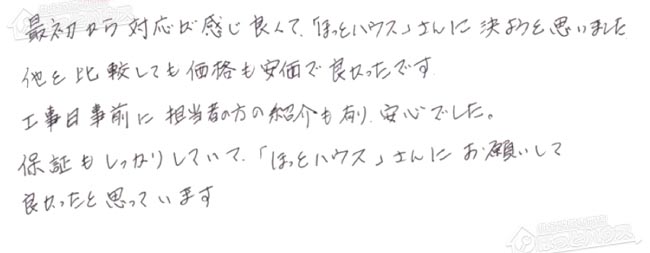 最初から対応が感じ良くて、「ほっとハウス」さんに決ようと思いました
他と比較しても価格も安価で良かったです
工事日事前に担当者の方の紹介も有り、安心でした。
保証もしっかりしていて、「ほっとハウス」さんにお願いして
良かったと思っています
ほっとハウス